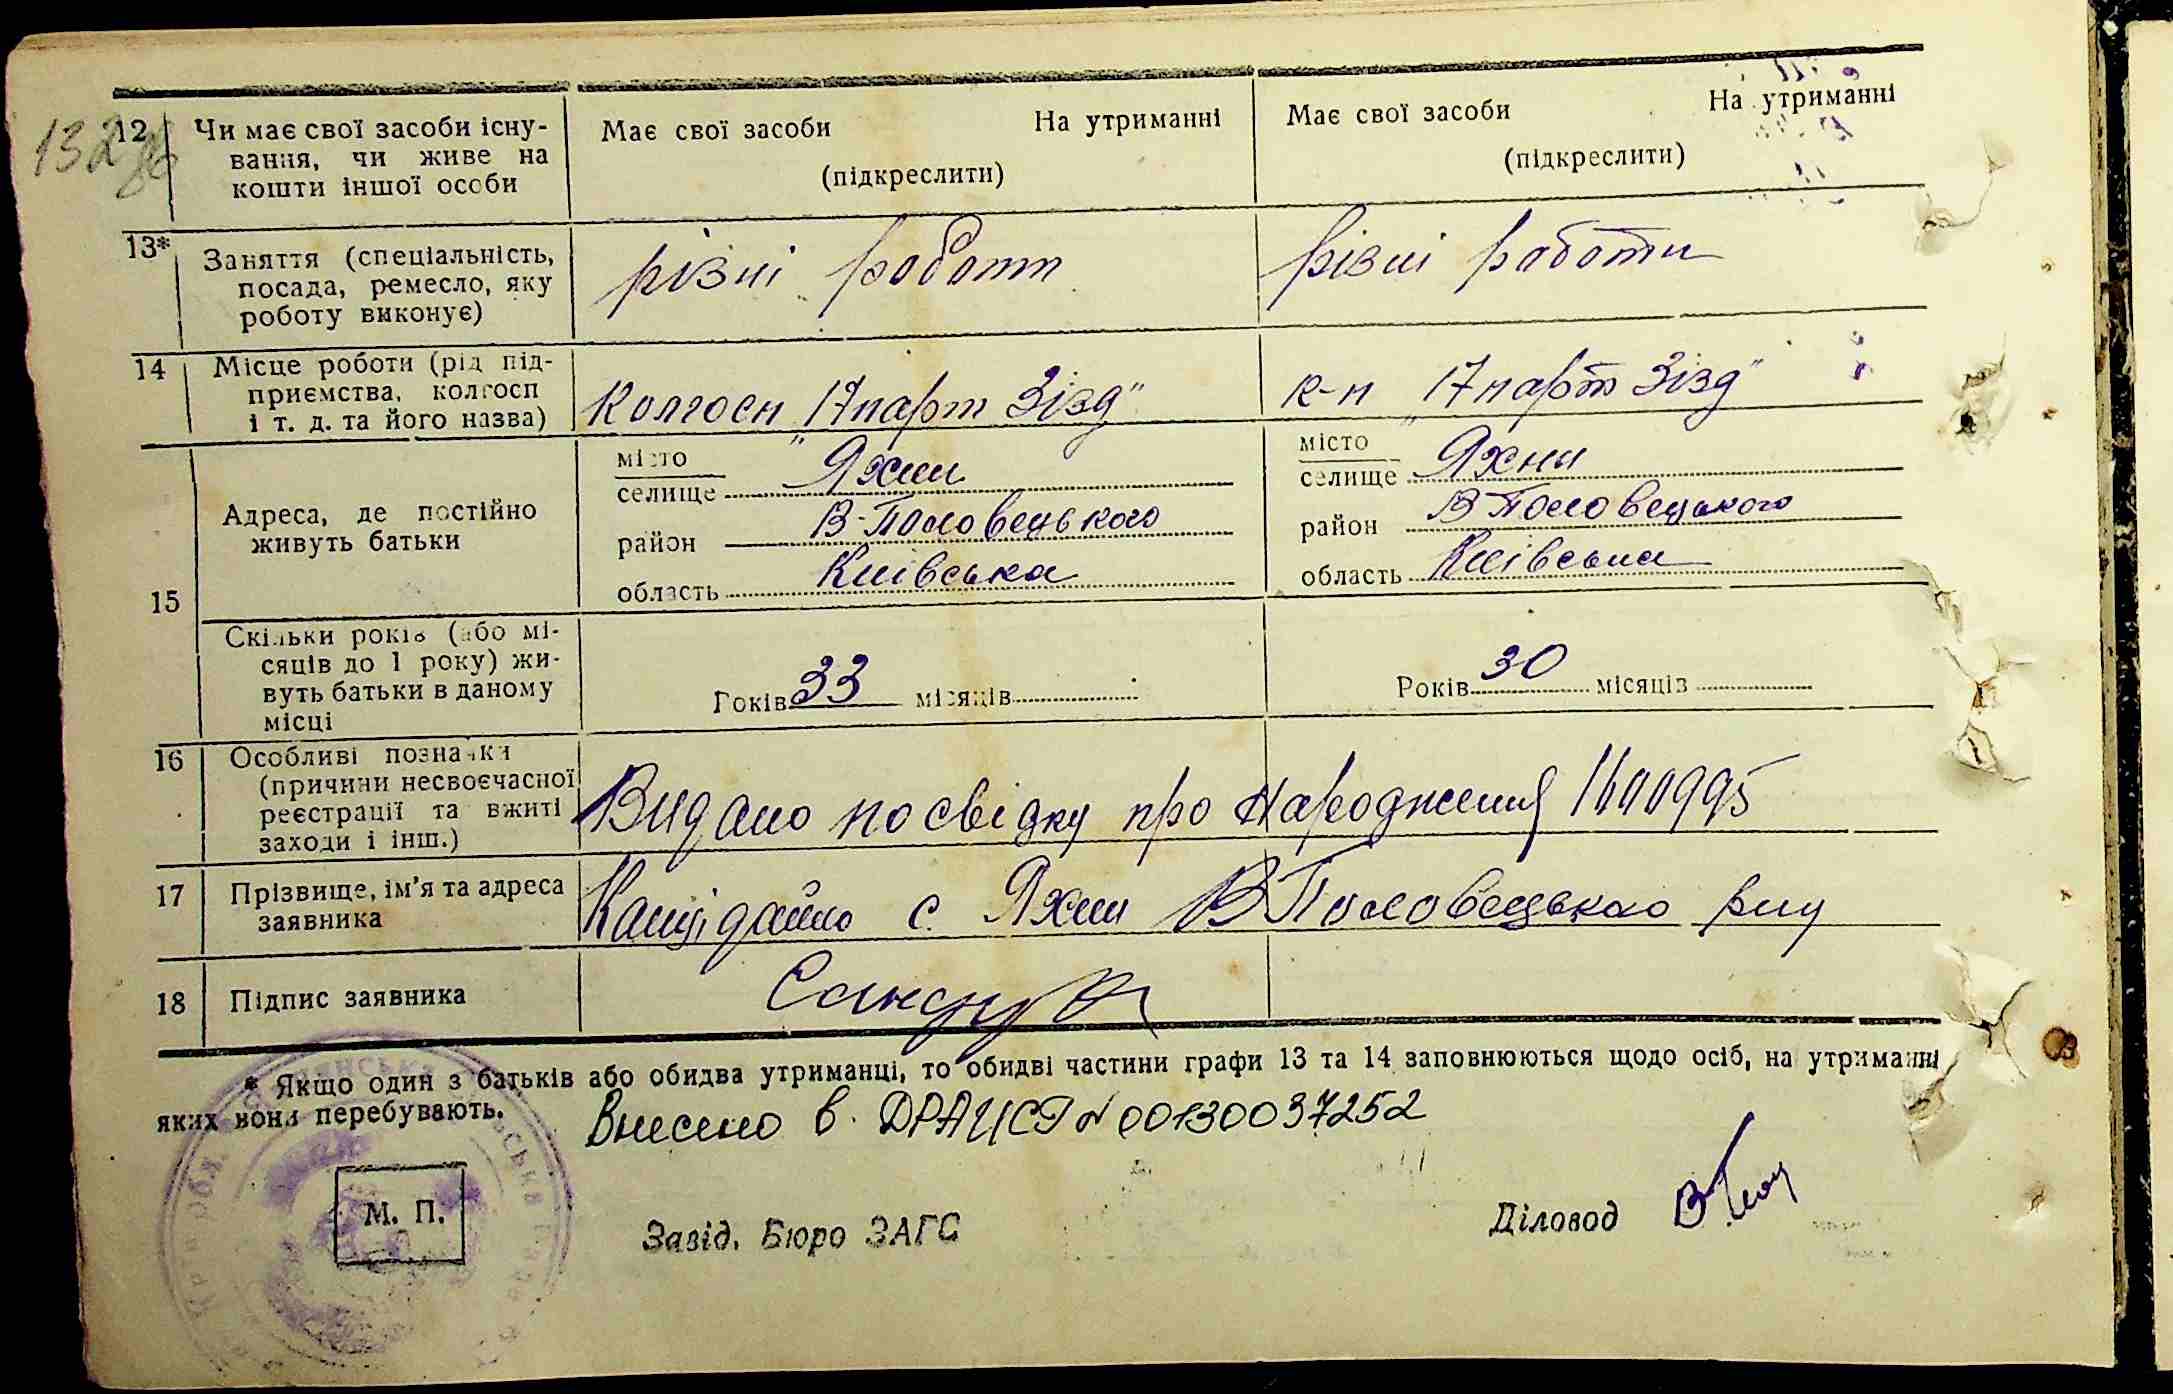 132 зв
12 Чи має свої засоби існу-
вання, чи живе на
кошти іншої особи
Має свої засоби На утриманні
(підкреслити)
Має свої засоби На утриманні
(підкреслити)
13* Заняття (спеціальність,
посада, ремесло, яку
роботу виконує)
різні роботи
різні работи
14 Місце роботи (рід під-
приємства, колгосп
і т. д. та його назва)
Колгосп "17 парт Зізд"
к-п "17 парт Зізд"
15
Адреса, де постійно
живуть батьки
місто
селище Яхни
район В-Половецького
область Київська
місто
селище Яхни
район В Половецького
область Київська
Скільки років (або мі-
сяців до 1 року) жи-
вуть батьки в даному
місці
Років 33 місяців
Років 30 місяців
16 Особливі позначки
(причини несвоєчасної
реєстрації та вжиті
заходи і інш.)
Видано посвідку про народження
17 Прізвище, ім'я та адреса
заявника
с. Яхни В Половецького р-ну
18 Підпис заявника
* Якщо один з батьків або обидва утриманці, то обидві частини графи 13 та 14 заповнюються щодо осіб, на утриманні
яких вони перебувають.
Внесено в ДРАЦСГ № 00130037252
М. П.
Завід. Бюро ЗАГС
Діловод